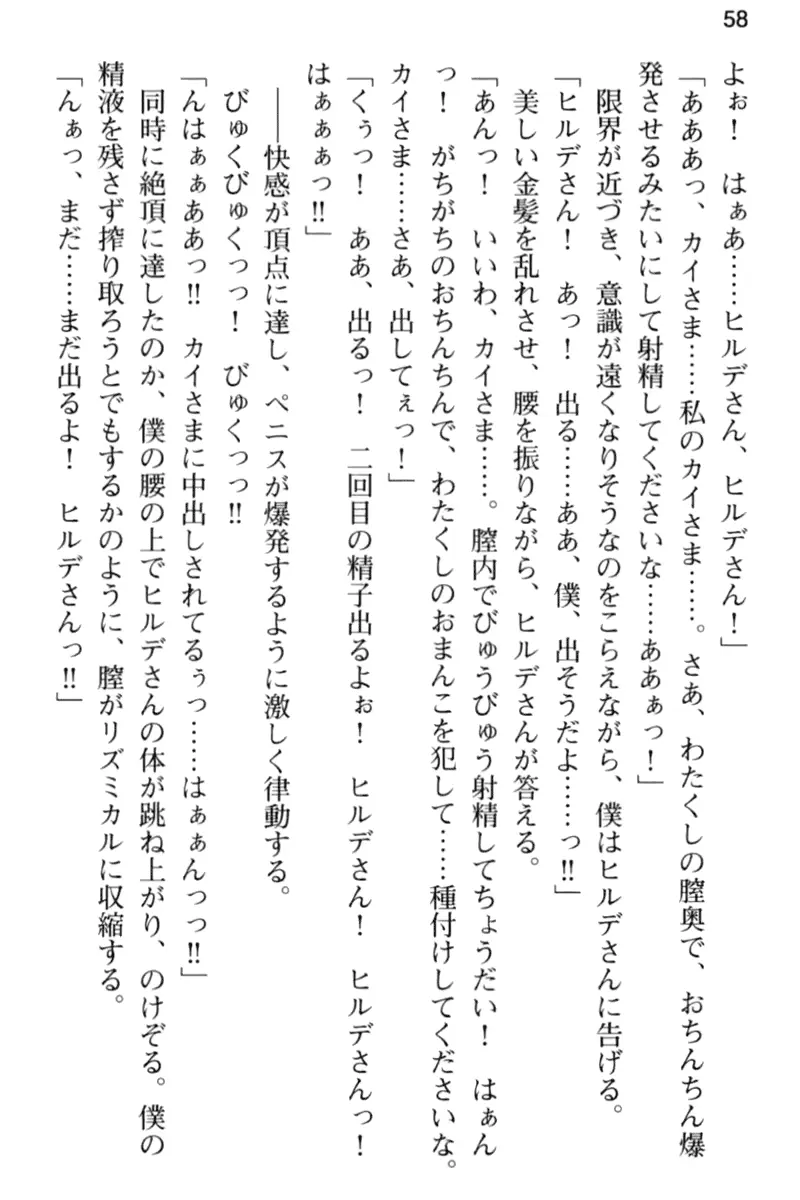 58
よぉ！　はぁあ……ヒルデさん、ヒルデさん！」
「あああっ、カイさま……私のカイさま……。さあ、わたくしの膣奥で、おちんちん爆
発させるみたいにして射精してくださいな……ああぁっ！」
限界が近づき、意識が遠くなりそうなのをこらえながら、僕はヒルデさんに告げる。
「ヒルデさん！　あっ！　出る……ああ、僕、出そうだよ……っ‼」
美しい金髪を乱れさせ、腰を振りながら、ヒルデさんが答える。
「あんっ！　いいわ、カイさま……。膣内でびゅうびゅう射精してちょうだい！　はぁん
っ！　がちがちのおちんちんで、わたくしのおまんこを犯して……種付けしてくださいな。
カイさま……さあ、出してぇっ！」
「くぅっ！　ああ、出るっ！　二回目の精子出るよぉ！　ヒルデさん！　ヒルデさんっ！
はぁぁぁっ‼」
――快感が頂点に達し、ペニスが爆発するように激しく律動する。
びゅくびゅくっっ！　びゅくっっ‼
「んはぁぁああっ‼　カイさまに中出しされてるぅっ……はぁぁんっっ‼」
同時に絶頂に達したのか、僕の腰の上でヒルデさんの体が跳ね上がり、のけぞる。僕の
精液を残さず搾り取ろうとでもするかのように、膣がリズミカルに収縮する。
「んぁっ、まだ……まだ出るよ！　ヒルデさんっ‼」